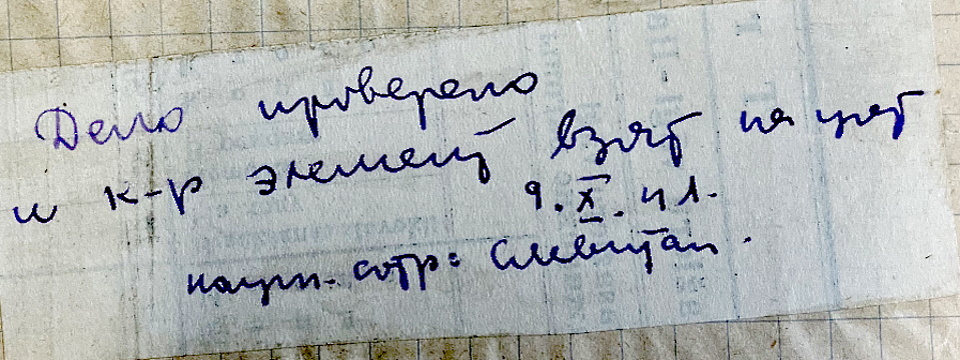 Дело проверено
и к-р элемент взят на учет
9.X.41.
научн. сотр: